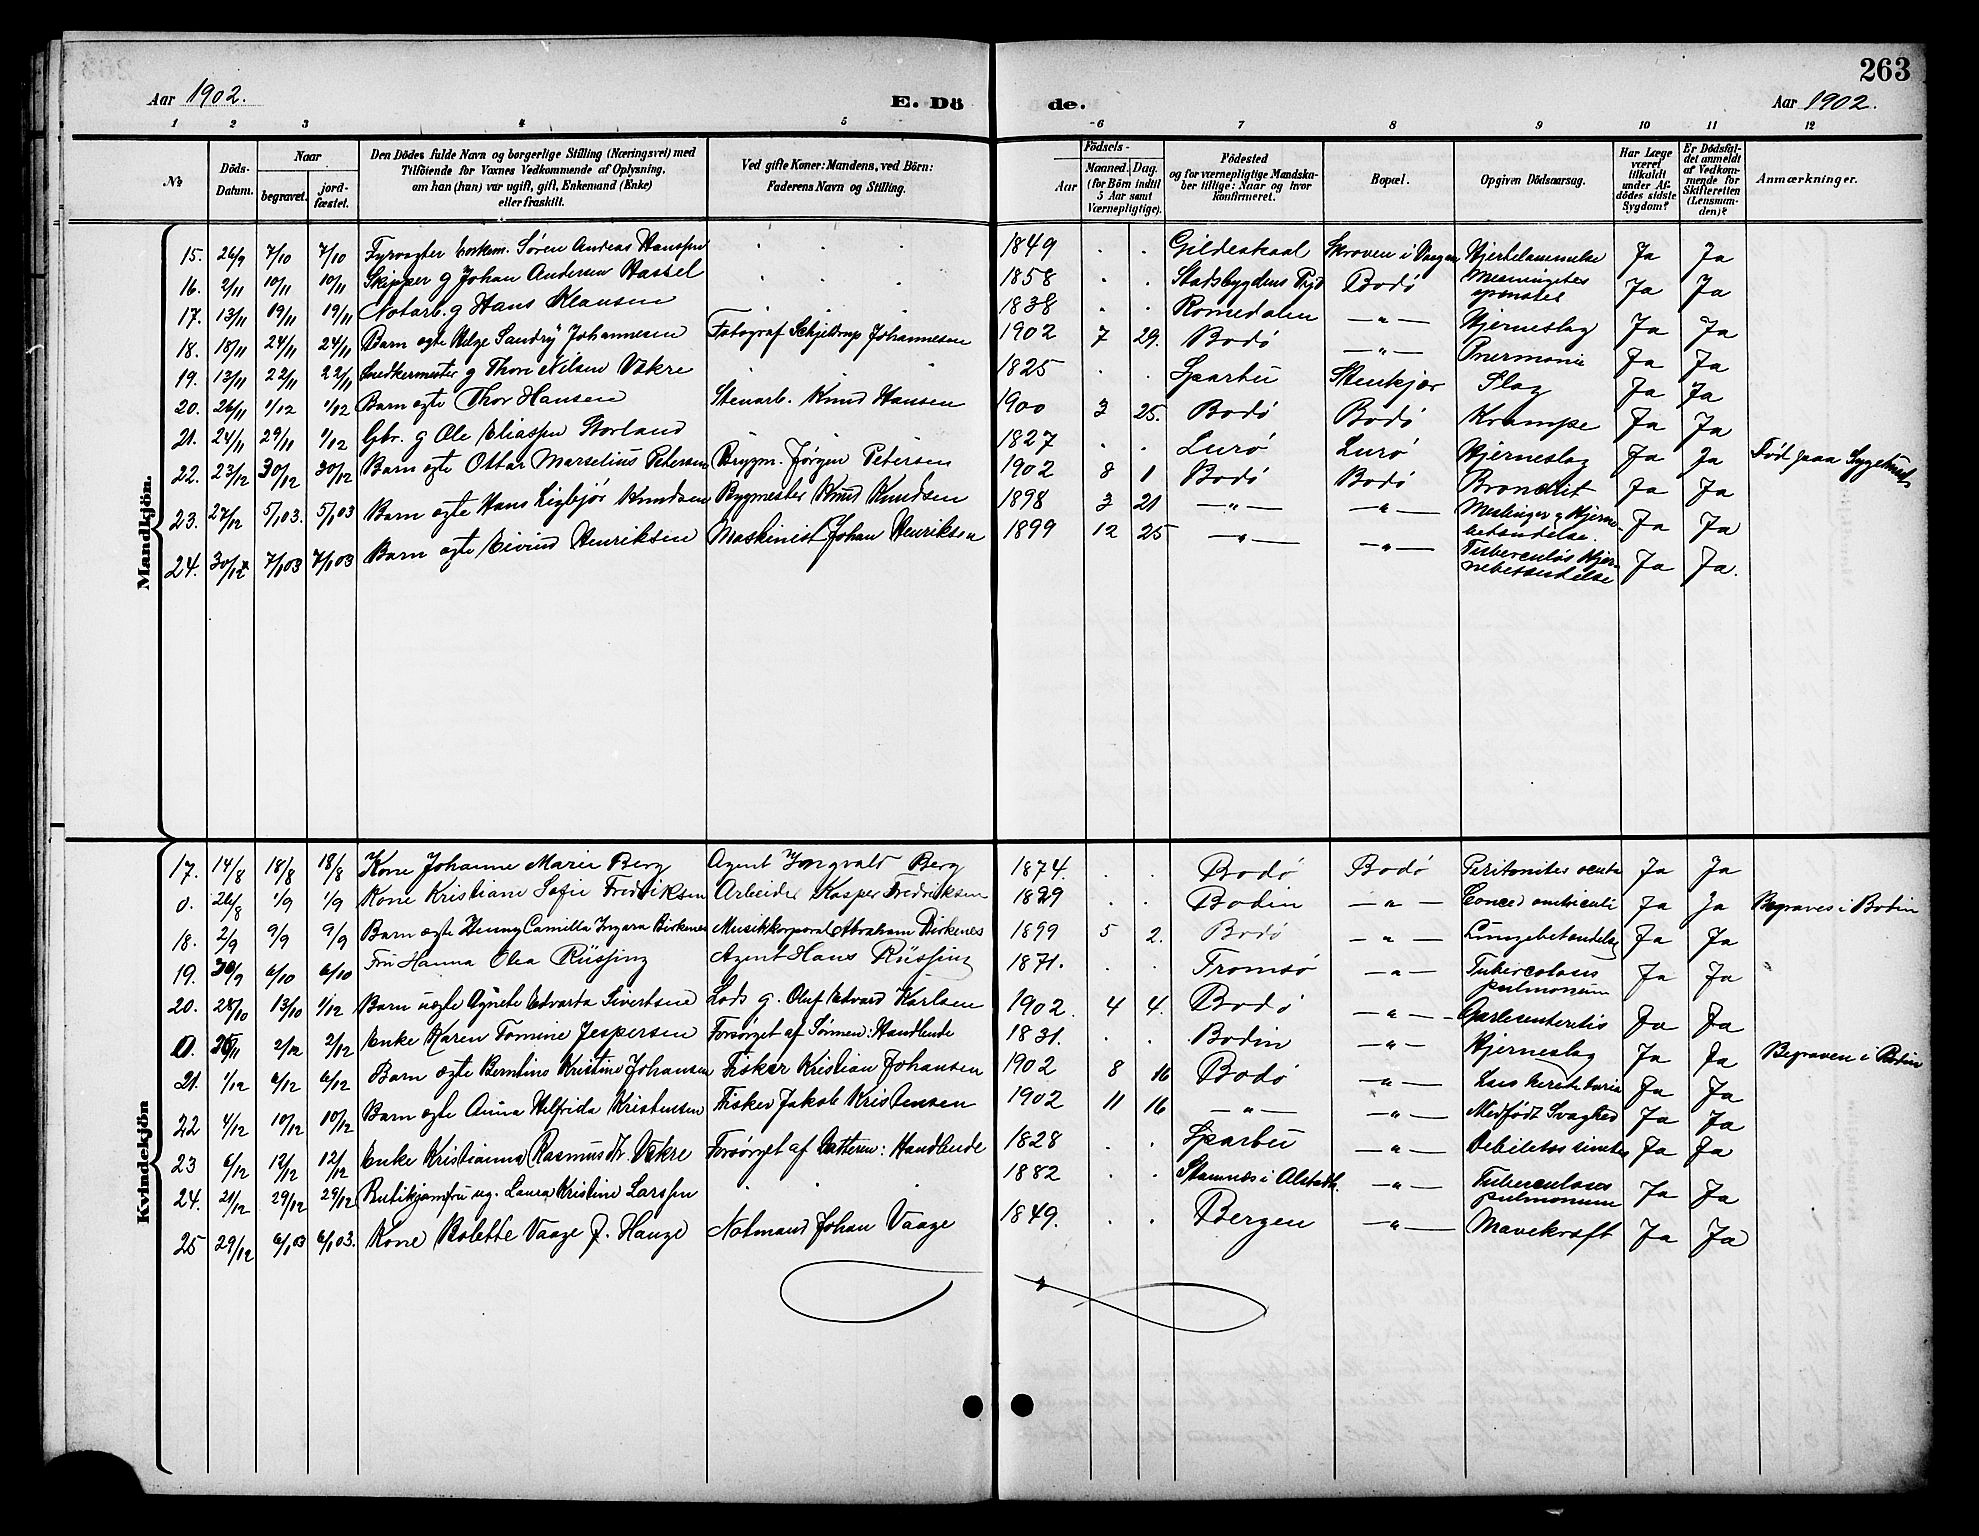 263
Aar 1902. E. Dö de. Aar 1902.
1 2 3 4 5 6 7 8 9 10 11 12
№
Döds-Datum.
Naar
begravet.
jord-fæstet.
Den Dödes fulde Navn og borgerlige Stilling (Næringsvei) med
Tilföiende for Voxnes Vedkommende af Oplysning,
om han (hun) var ugift, gift, Enkemand (Enke)
eller fraskilt.
Ved gifte Koner: Mandens, ved Börn:
Faderens Navn og Stilling.
Födsels-
Aar
Maaned. Dag.
(for Börn indtil
5 Aar samt
Værnepligtige).
Födested
og for værnepligtige Mandska-
ber tillige: Naar og hvor
konfirmeret.
Bopæl.
Opgiven Dödsaarsag.
Har Læge
været
tilkaldt
under Af-
dödes sidste
Sygdom?
Er Dödsfal-
det anmeldt
af Vedkom-
mende for
Skifteretten
(Lensman-
den)?
Anmærkninger.
Mandkjön.
15. 26/9 7/10 7/10 Fyrvogter Søren Andreas Hanssen 1849 Gildeskaal Skroven i Vaagan Hjertelammelse Ja Ja
16. 2/11 10/11 10/11 Skipper g Johan Andersen Hassel 1858 Stadsbygdens Bodø Ja Ja
17. 13/11 19/11 19/11 Notarb. g Hans Klausen 1838 Romedalen —"— Hjerneslag Ja Ja
18. 18/11 24/11 24/11 Barn ægte Helge Sandry Johannesen Fotograf Schjeldrup Johannesen 1902 7 29. Bodø —"— Pnevmoni Ja Ja
19. 13/11 22/11 22/11 Snedkermester g Thore Nilsen Vækre 1825 Sparbu Stenkjær Slag Ja Ja
20. 26/11 1/12 1/12 Barn ægte Thor Hansen Stenarb. Knud Hansen 1900 3 25. Bodø Bodø Krampe Ja Ja
21. 24/11 29/11 1/12 Gbr. g Ole Eliassen Storland 1827 Lurø Lurø Hjerneslag Ja Ja
22. 23/12 30/12 30/12 Barn ægte Ottar Marselius Petersen Brygm. Jørgen Petersen 1902 8 1 Bodø Bodø Bronchit Ja Ja Født paa Sygehuset
23. 27/12 5/1 03. 5/1 03 Barn ægte Hans Ligbjør Knudsen Bygmester Knud Knudsen 1898 3 21 —"— —"— Meslinger & Hjerne-
betændelse. Ja Ja
24. 30/12 7/1 03 7/1 03 Barn ægte Eivind Henriksen Maskinist Johan Henriksen 1899 12 25 —"— —"— Tuberculøs Hjer-
nebetændelse Ja Ja.
Kvindekjön
17. 14/8 18/8 18/8 Kone Johanne Marie Berg Agent Yngvald Berg 1874. Bodø Bodø Peritonites acuta Ja Ja
0. 26/8 1/9 1/9 Kone Kristiane Sofie Fredriksen Arbeider Kasper Fredriksen 1829 Bodin —"— Ja Ja Begraves i Bodin
18. 2/9 9/9 9/9 Barn ægte Henny Camilla Ingara Birkenes Musikkorporal Abraham Birkenes 1899 5 2. Bodø —"— Lungebetændelse Ja Ja
19. 30/9 6/10 6/10 Fru Hanna Olea Rüssing Agent Hans Rüssing 1871. Tromsø —"— Tuberculosis
pulmonum Ja Ja
20. 28/10 13/10 1/12 Barn uægte Agnete Edvarta Sivertsen Lods g. Oluf Edvard Karlsen 1902. 4 4. Bodø —"— Ja Ja
0. 2/12 2/12 Enke Karen Tomine Jespersen Forsørget af Sønnen: Handlende 1831. Bodin —"— Hjerneslag Ja Ja Begraven i Bodin
21. 1/12 6/12 6/12 Barn ægte Berntine Kristine Johansen Fisker Kristian Johansen 1902 8 16 Bodø —"— Ja Ja
22 4/12 10/12 10/12 Barn ægte Anna Helfrida Kristensen Fisker Jakob Kristensen 1902 11 16 —"— —"— Medfødt Svaghed Ja Ja
23 6/12 12/12 12/12 Enke Kristianna Rasmusdtr. Vækre Forsørget af Datteren: Handlende 1828 Sparbu —"— Debilitas Ja Ja
24. 21/12 29/12 29/12 Butikjomfru ug. Laura Kristine Larssen 1882 Stamnes i Alstadh. —"— Tuberculoses
pulmonum Ja Ja
25 29/12 6/1 03 6/1 03. Kone Bolette Vaage f. Hauge Notmand Johan Vaage 1849. Bergen —"— Mavekræft Ja Ja